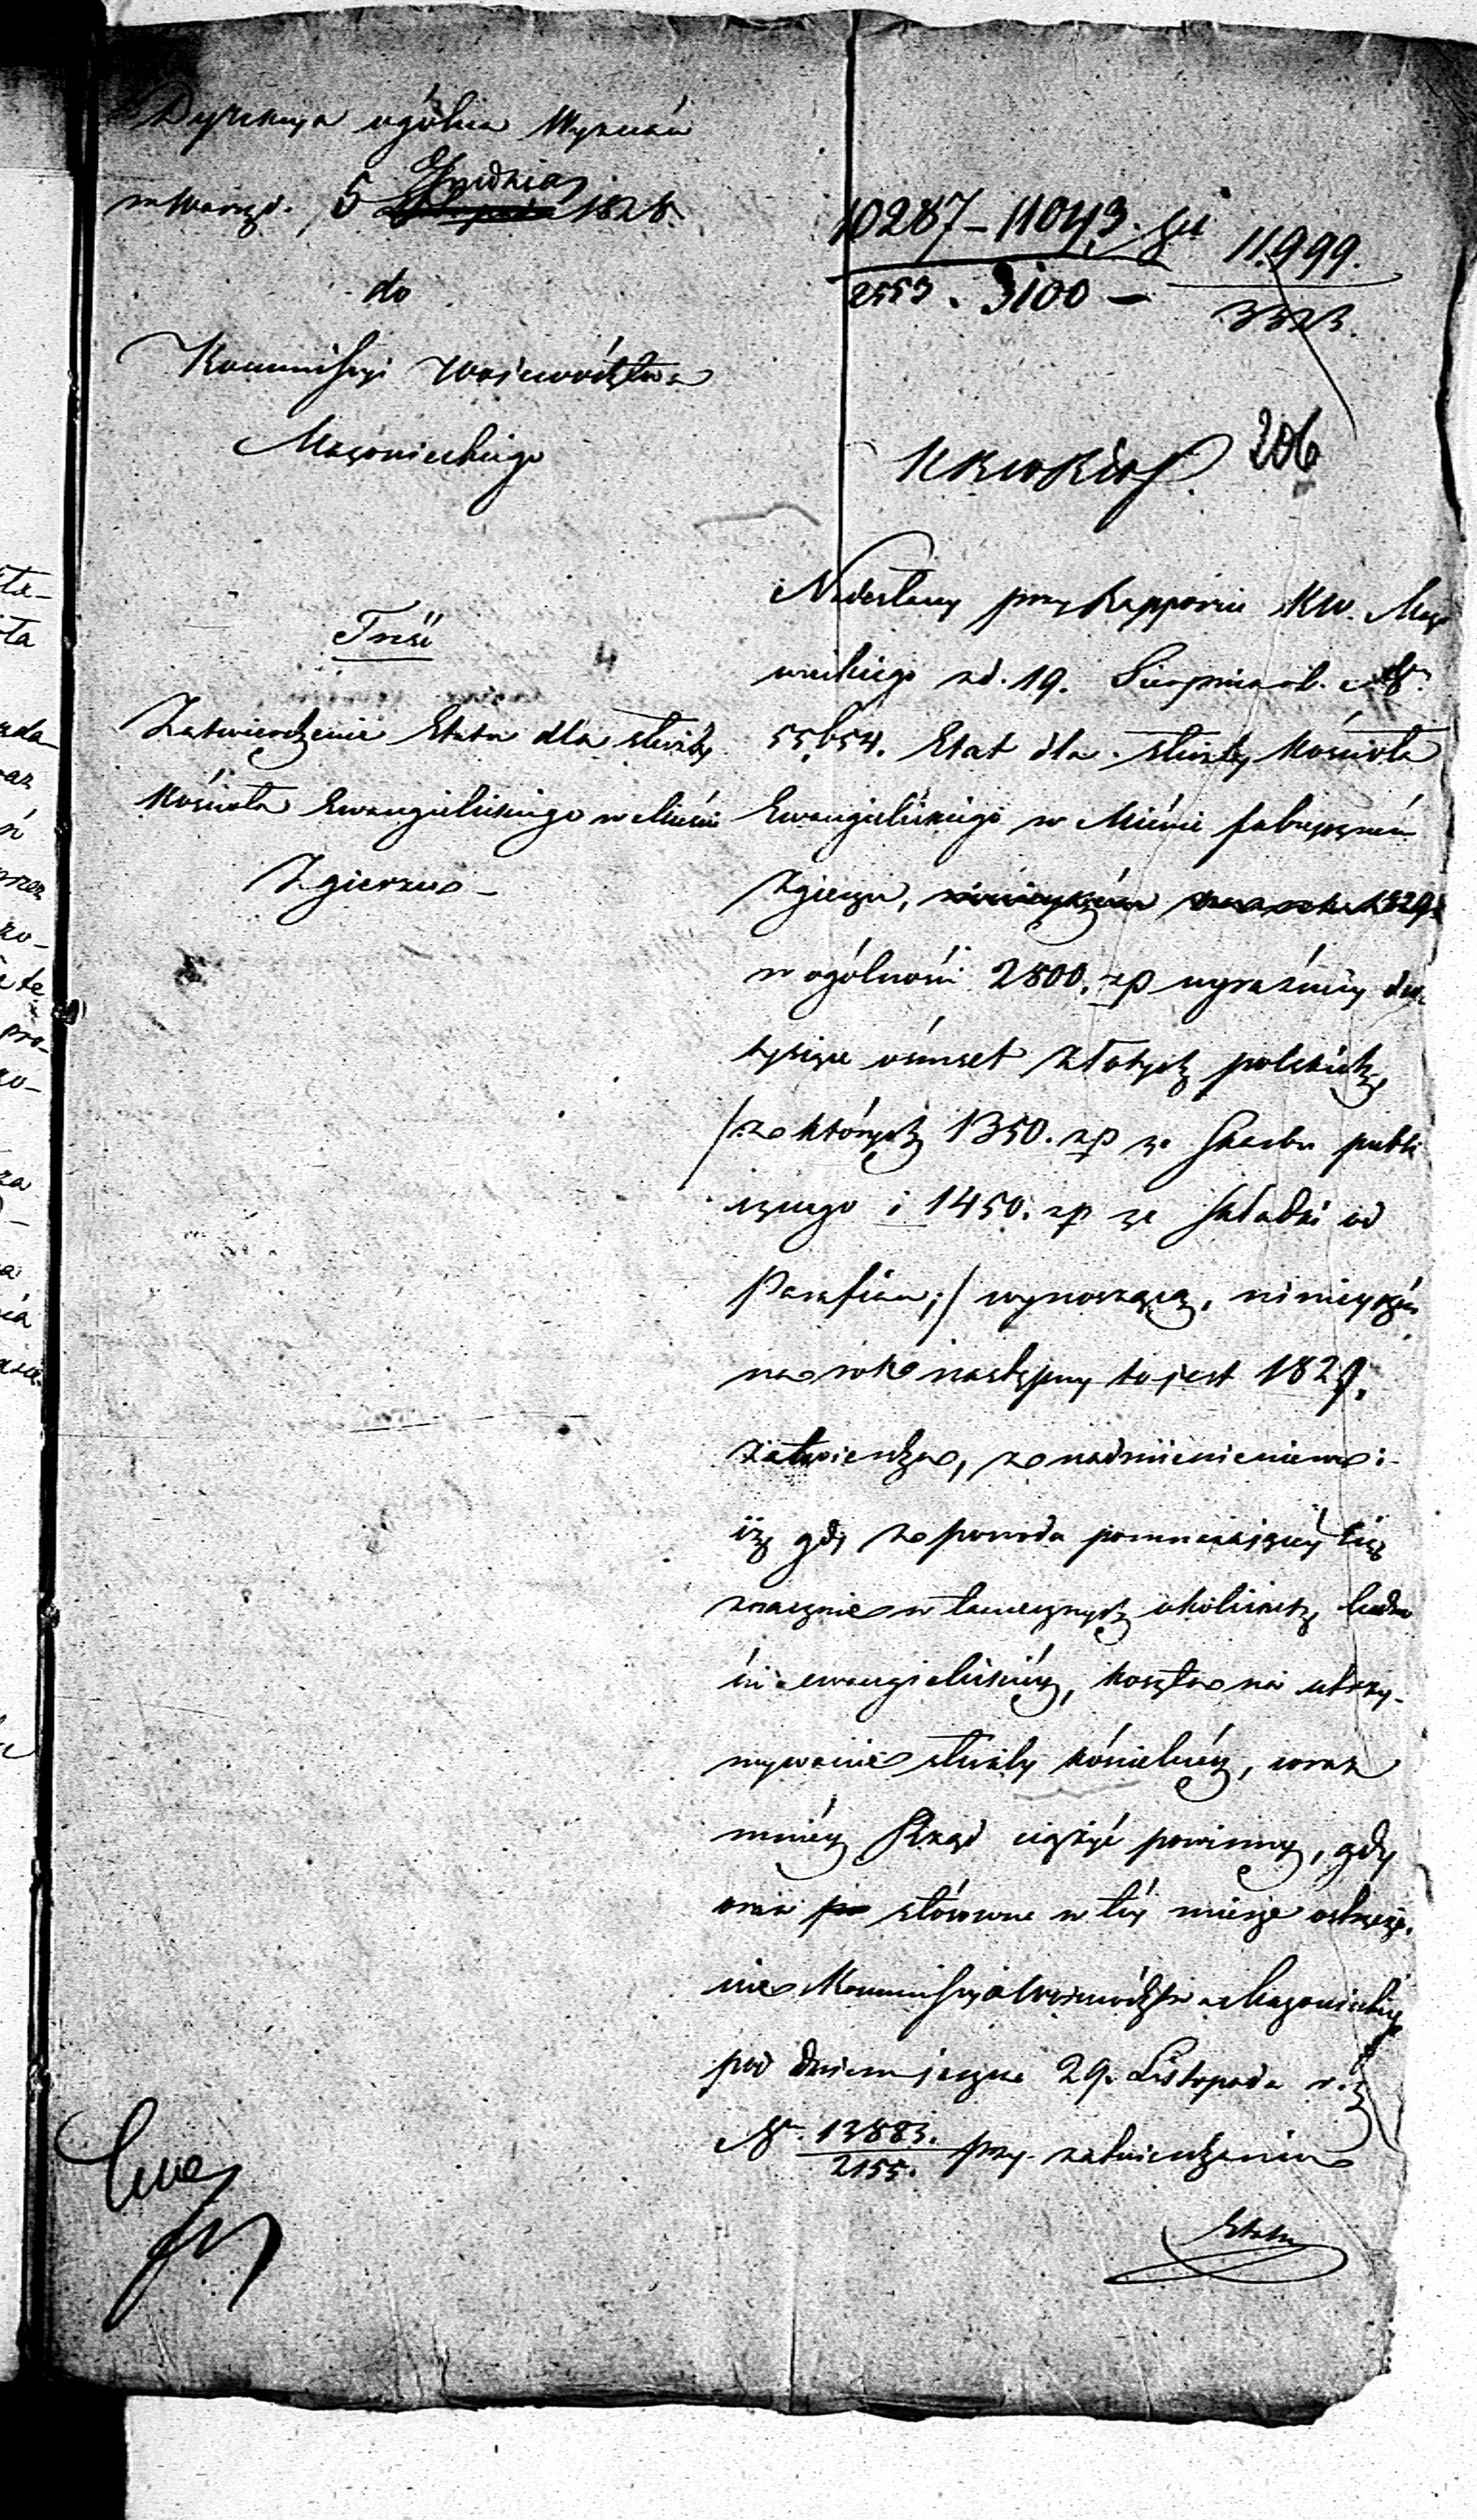 Dyrekcya ogólna Wyznań
w Warsz. 5 Grudnia 1828.
do
Kommissyi Województwa
Mazowieckiego
10287 - 11043. 11.999.
2553. 3100 - 3323.
206
Treść
Zatwierdzenie Etatu dla służby
Kościoła Ewangielickiego w Mieście
Zgierzu -
Nadesłany przy Rapporcie KW. Mazo
wieckiego z d. 19. Sierpnia r.b. Nr
55,654. Etat dla służby Kościoła
Ewangielickiego w Mieście fabrycznem
Zgierzu, ninieyszém 1829
w ogólności 2800. zp wyraźniey dwa
tysiące ośmset złotych polskich,
/z których 1350. zp ze Skarbu publi
cznego i 1450. zp ze składki od
Parafian;/ wynoszący, ninieyszém
na rok następny to jest 1829.
zatwierdza, z nadmienieniem:
iż gdy z powodu pomnażającey się
znacznie w tamecznych okolicach, ludno
ści ewangielickiéy, koszta na utrzy-
mywanie służby kościelnéy, coraz
mniéy Rząd ciążyć powinny, gdy
ona stósowne w téy mierze ostrzeże-
nie Kommissyi Województwa Mazowieckiego
pod dniem jeszcze 29. Listopada r. z
Nr. 13883.
2155. przy zatwierdzeniu
Etatu